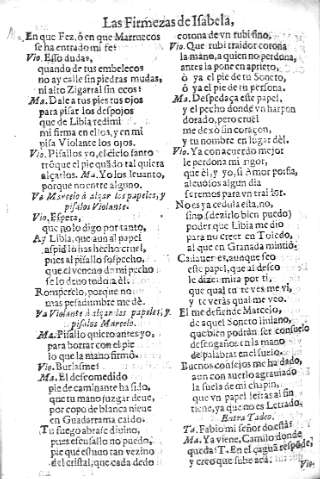 Las Firmezas de Isabela,
En que Fez, ô en que Marruecos
se ha entrado mi fe?
Vio. Esso dudas,
quando de tus embelecos
no ay calle sin piedras mudas,
ni alto Zigarral sin ecos?
Ma. Dale a tus pies tus ojos
para pisar los despojos
que de Libia redimi
mi firma en ellos, y en mi
pisa Violante los ojos.
Vio. Pisallos yo, el cielo santo
trôque el pie quâdo tal quiera
alçarlos. Ma. Yo los leuanto,
porque no entre alguno.
Va Marcelo à alçar los papeles, y
pisalos Violante.
Vio. Espera,
que no lo digo por tanto,
Ay Libia, que aun al papel
aspid lo has hecho cruel,
pues al pisallo sospecho,
que el veneno de mi pecho
se lo deuo todo à èl.
Rompereslo, porque no
mas pesadumbre me dè.
Va Violante à alçar los papeles, y
pisalos Marcelo.
Ma. Pisallo quiero antes yo,
para borrar con el pie
lo que la mano firmò.
Vio. Burlasme?
Ma. El descomedido
pie de caminante ha sido,
que tu mano juzgar deue,
por copo de blanca nieue
en Guadarrama caido.
Tu fuego abrase diuino,
pues escusallo no puedo,
pie que estuuo tan vezino
del cristal, que cada dedo
corona de vn rubi fino,
Vio. Que rubi traidor corona
la mano, a quien no perdona,
antes la pone en aprieto,
ò ya el pie de tu Soneto,
ò ya el pie de tu persona.
Ma. Despedaça este papel,
y el pecho donde vn harpon
dorado, pero cruel
me dexò sin coraçon,
y tu nombre en lugar dèl.
Vio. Ya con acuerdo mejor
le perdona mi rigor,
que èl, y yo, si Amor porfia,
alcuoios algun dia
seremos para vn traidor.
No es ya cedula esta, no,
sino (dezirlo bien puedo)
poder que Libia me dio
para no creer en Toledo,
al que en Granada mintiò.
Cadauer es, aunque seco
este papel, que al desseo
le dize: mira por ti,
que qual tu te ves me vi,
y te veràs qual me veo.
El me defiende Marcelo,
de aquel Soneto liuiano,
que bien podrân ser consuelo
desengaños en la mano
de palabras en el suelo.
Buenos consejos me ha dado,
aun con auerlo agrauiado
la suela de mi chapin,
que vn papel letras al fin
tiene, ya que no es Letrado.
Entra Tadeo.
Ta. Fabio mi señor do estàs?
Ma. Ya viene, Camilo donde
queda? T. En el çaguâ respôde,
y creo que sube acà.
Vio.